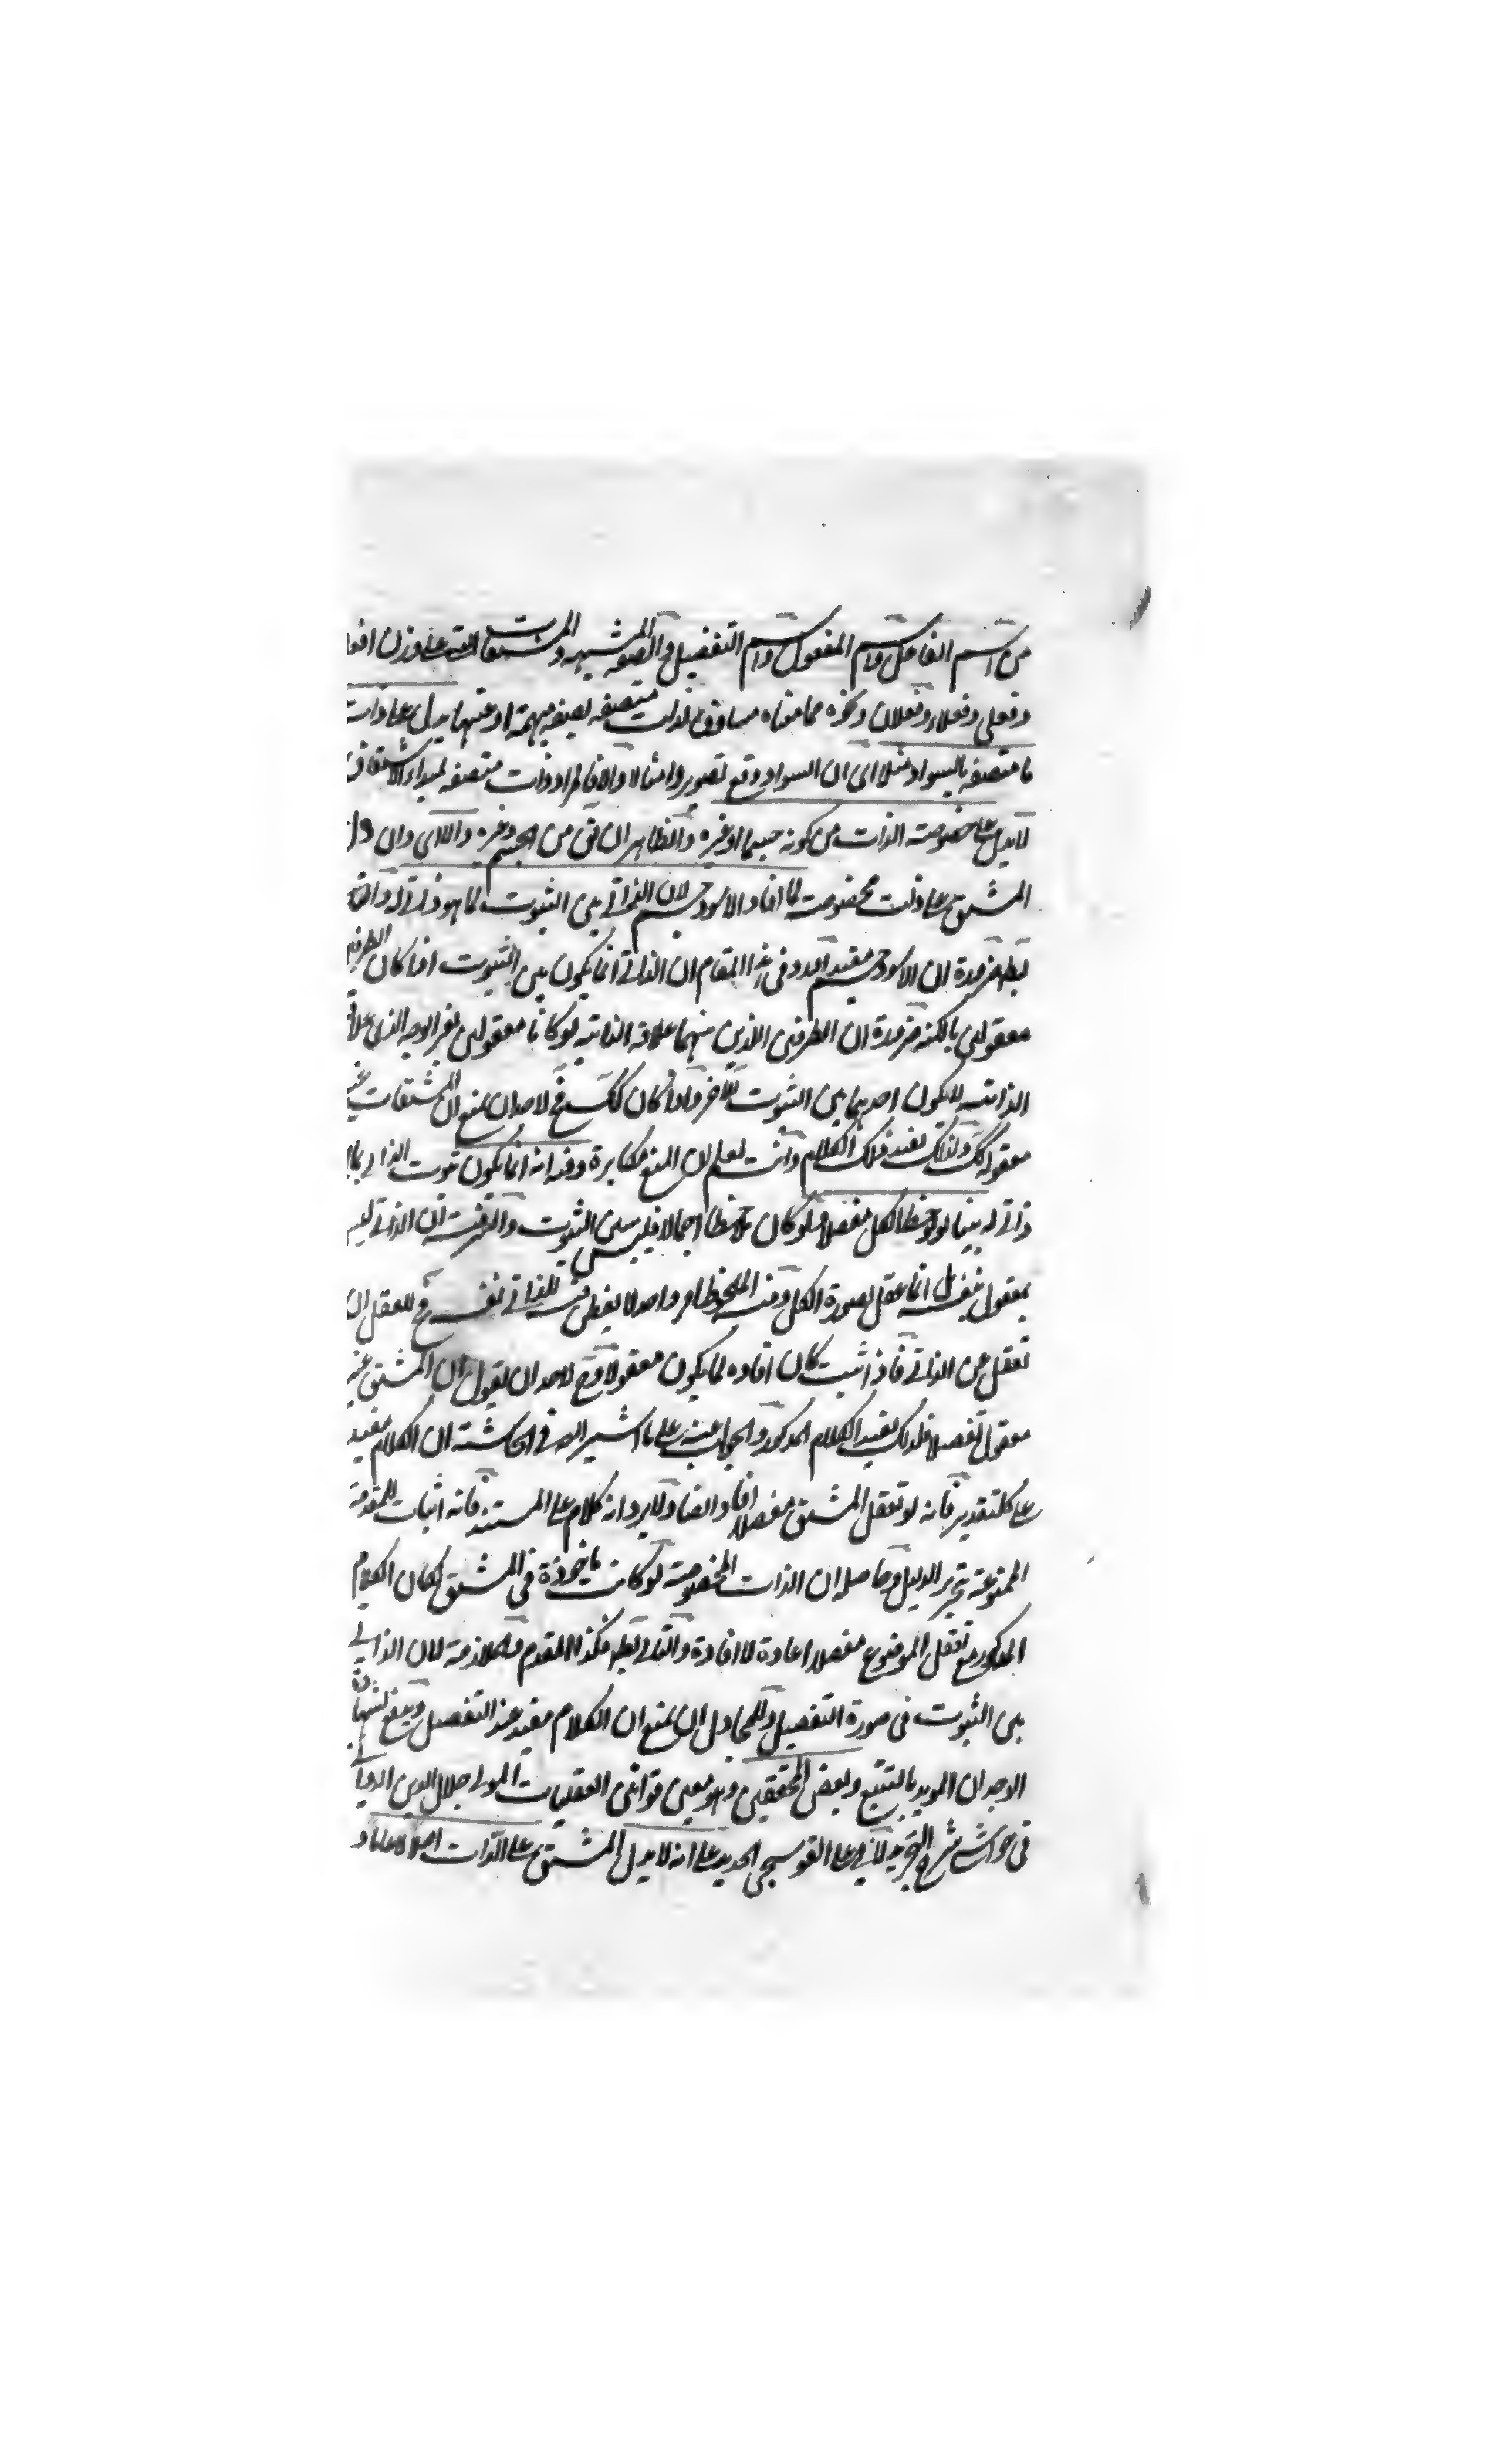 من اسم الفاعل واسم المفعول واسم التفضيل والصفة المشبهة والمشتقات على وزن افعل
وفعلى وفعلاء وفعلان ونحوه مما معناه مساوق لذات متصفة بصفة مبهمة او عينها يدل على ذات
ما متصفة بالسواد مثلا اى ان السواد وقع تصويرا ومثالا والا فالمراد ذات متصفة لمبداء الاشتقاق
لا يدل على خصوصية الذات من كونه جسما او غيره والظاهر ان يق من الجسم وغيره والا اى وان دل
المشتق على ذات مخصوصة لما افاد الاسود جسم لان الذاتي بين الثبوت لما هو ذاتي له
بط ضرورة ان الاسود جسم مفيد اورد في هذا المقام ان الذاتي انما يكون بين الثبوت اذا كان الطرفين
معقولين بالكنه ضرورة ان الطرفين الذين بينهما علاقة الذاتية لو كانا معقولين بغير الوجه الذى
الذاتية لا يكون احديهما بين الثبوت للآخر واذا كان كك فح لاحد ان يمنع ان المشتقات غير
معقولة كك ولذلك يفيد ذلك الكلام وانت تعلم ان المنع مكابرة وفيه انه انما يكون ثبوت الذاتي لما
ذاتي له بينا لو لوحظ الكل مفصلا ولو كان ملاحظا اجمالا فليس بين الثبوت والسر فيه ان الذاتي ليس
بمعقول بنفسه بل انما عقل بصورة الكل وفيه الملحوظ امر واحد لا يعطى فيه للذاتي نفسه فح للعقل ان
تعقل عن الذاتي فاذا ثبت كان افادة لما يكون معقولا وح لاحد ان يقول ان المشتق غير
معقول تفصيلا فلذلك يفيد الكلام المذكور والجواب عنه على ما اشير اليه في الحاشية ان الكلام مفيد
على كل تقدير فانه لو تعقل المشتق مفصلا افاد ايضا ولا يرد انه كلام على المستند فانه اثبات للمقدمة
الممنوعة بتحرير الدليل وحاصله ان الذات المخصوصة لو كانت ماخوذة في المشتق لكان الكلام
المذكور مع تعقل الموضوع مفصلا اعادة لا افادة والتالي بط فكذا المقدم والملازمة لان الذاتي
بين الثبوت في صورة التفصيل وللمجادل ان يمنع ان الكلام مفيد عند التفصيل بشهادة
الوجدان المويد بالتتبع وبعض المحققين وهو معين قوانين العقليات المولى جلال الدين الدواني
في حواشى شرح التجريد على القوشجى الجديد على انه لا يدل المشتق على الذات اصلا لا عاما و